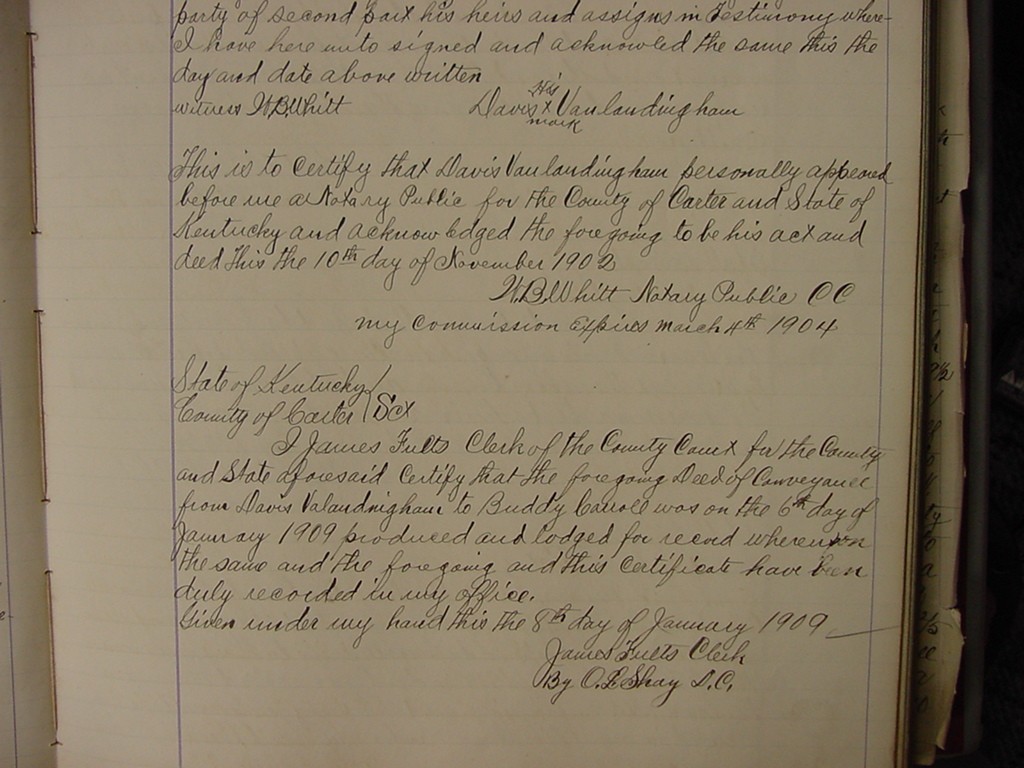 party of second part his heirs and assigns in Testimony where-
I have here unto signed and acknowled the same this the
day and date above written
witness W.B. Whitt Davis his x mark Vanlandingham
This is to certify that Davis Vanlandingham personally appeared
before me a Notary Public for the County of Carter and State of
Kentucky and acknowledged the foregoing to be his act and
deed This the 10th day of November 1902
W.B. Whitt Notary Public CC
my commission Expires march 4th 1904
State of Kentucky
County of Carter Sct
I James Fults Clerk of the County Court for the County
and State aforesaid Certify that the foregoing Deed of Conveyance
from Davis Valandnigham to Buddy Carroll was on the 6th day of
January 1909 produced and lodged for record whereupon
the same and the foregoing and this certificate have been
duly recorded in my office.
Given under my hand this the 8th day of January 1909
James Fults Clerk
By O.E. Shay D.C.